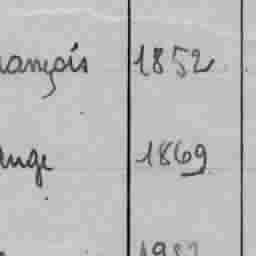 ançois 1852
ange 1869